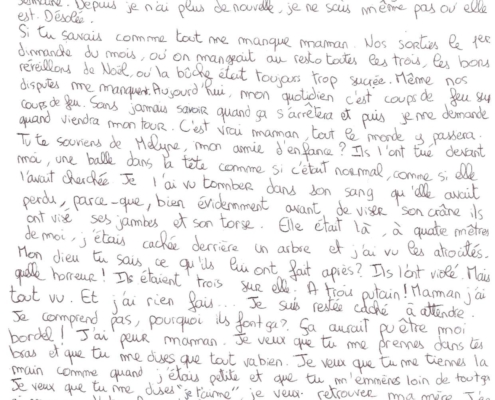 semaine. Depuis je n'ai plus de nouvelle, je ne sais même pas où elle
est. Désolée.
Si tu savais comme tout me manque maman. Nos sorties le 1er
dimanche du mois, où on mangeait au resto toutes les trois, les bons
réveillons de Noël, où la bûche était toujours trop sucrée. Même nos
disputes me manquent. Aujourd'hui, mon quotidien c'est coups de feu sur
coups de feu. Sans jamais savoir quand ça s'arrêtera et puis je me demande
quand viendra mon tour. C'est vrai maman, tout le monde y passera.
Tu te souviens de Mélyne, mon amie d'enfance ? Ils l'ont tué devant
moi, une balle dans la tête comme si c'était normal, comme si elle
l'avait cherchée. Je l'ai vu tomber dans son sang qu'elle avait
perdu, parce-que, bien évidemment avant de viser son crâne ils
ont visé ses jambes et son torse. Elle était là, à quatre mètres
de moi, j'étais cachée derrière un arbre et j'ai vu les atrocités.
Mon dieu tu sais ce qu'ils lui ont fait après ? Ils l'ont violé. Mais
quelle horreur ! Ils étaient trois sur elle. A trois putain ! Maman j'ai
tout vu. Et j'ai rien fais... Je suis restée caché à attendre.
Je comprend pas, pourquoi ils font ça ?. Ça aurait pu être moi
bordel ! J'ai peur maman. Je veux que tu me prennes dans tes
bras et que tu me dises que tout va bien. Je veux que tu me tiennes la
main comme quand j'étais petite et que tu m'emmènes loin de tout ça
Je veux que tu me dises "je t'aime", je veux retrouver ma mère.